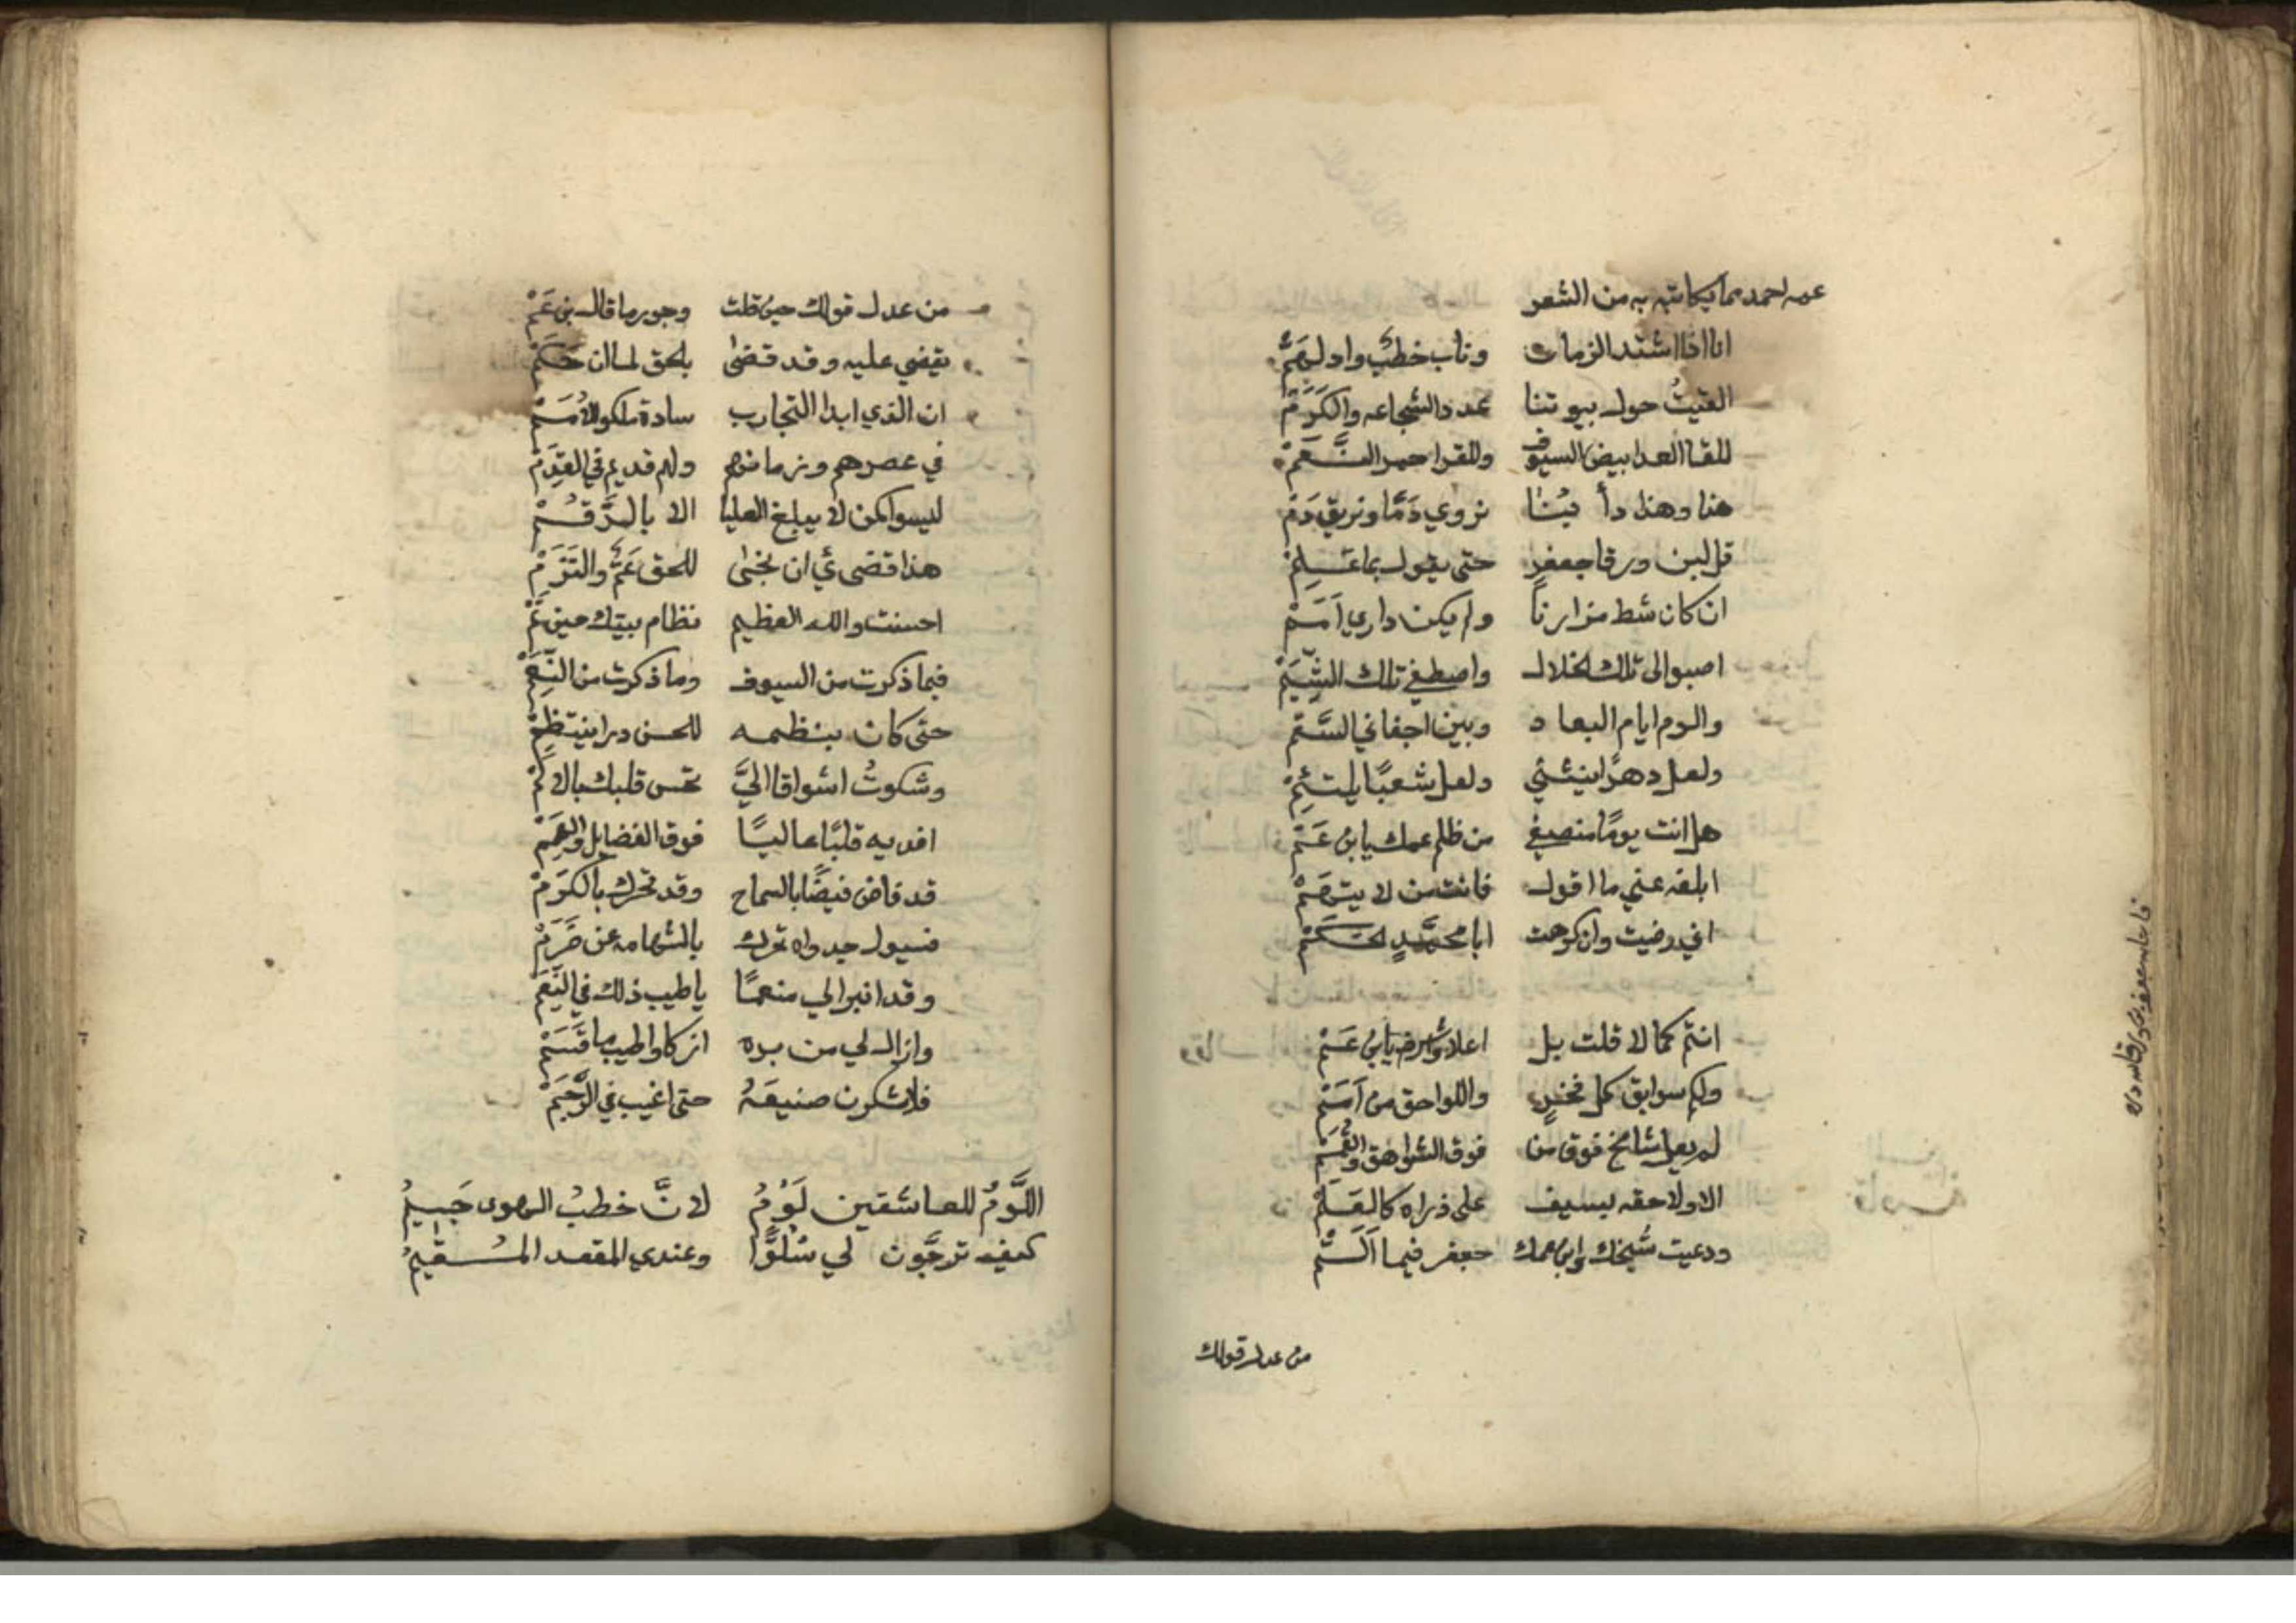 عمه احمد مما يكاتبه به من الشعر
انا اذا اشتد الزمان وناب خطب وادلهم
الفيت حول بيوتنا عدد الشجاعه والكرم
للقا العدا بيض السيوف وللقرا حمر النعم
هذا وهذا دأبنا نروي دما ونريق دم
قل لبن ورقا جعفر حتى يقول بما علم
ان كان شط مزارنا ولم يكن داري امم
اصبو الى تلك الخلال واصطفي تلك الشيم
والوم ايام البعاد وبين اجفاني السقم
ولعل دهرًا ينثني ولعل شعبًا يلتئم
هل انت يومًا منصفي من ظلم عمك يابن عم
ابلغه عني ما اقول فانت من لا يتهم
اني رضيت وان كرهت ابا محمد الحكم
انتم كما لا قلت بل اعلا واشرف يابن عم
ولكم سوابق كل فخر واللواحق من امم
لم يعل شامخ فوق من فوق الشواهق والقمم
الا ولاحقه يسيف على ذراه كالعلم
ودعيت شيخك وابن عمك جعفر فيما الم
من عدل قولك
فاجابه جعفر بن ورقا
من عدل قولك حين قلت وجور ما قال بن عم
يقضي عليه وقد قضى بالحق لما ان حكم
ان الذي ابدا التجارب سادة ملكوا الامم
في عصرهم وزمانهم ولهم قديم في القدم
ليسوا كمن لا يبلغ العليا الا بال
هذا قضى ئي ان نجنى للحق عم والتزم
احسنت والله العظيم نظام بيتك حين تم
فيما ذكرت من السيوف وما ذكرت من النعم
حتى كان بنظمه للحسن درا ينتظم
وشكوتُ اشواقا اليَّ تحس قلبك بالالم
افديه قلبًا عاليًا فوق الفضايل والهمم
قد فاض فيضًا بالسماح وقد تحرك بالكرم
فسيول جدواه بالشهامه عن ضرم
وقد انبرا لي منعمًا ياطيب ذلك في النعم
وازال لي من بره ازكا واطيب ما قسم
فلاشكرن صنيعهُ حتى اغيب في الرجم
اللَّومُ للعاشقين لَوْمُ لانَّ خطبُ الهوى جَسيمُ
كيف ترجَّون لي سُلوًّا وعندي المقعد المقيمُ